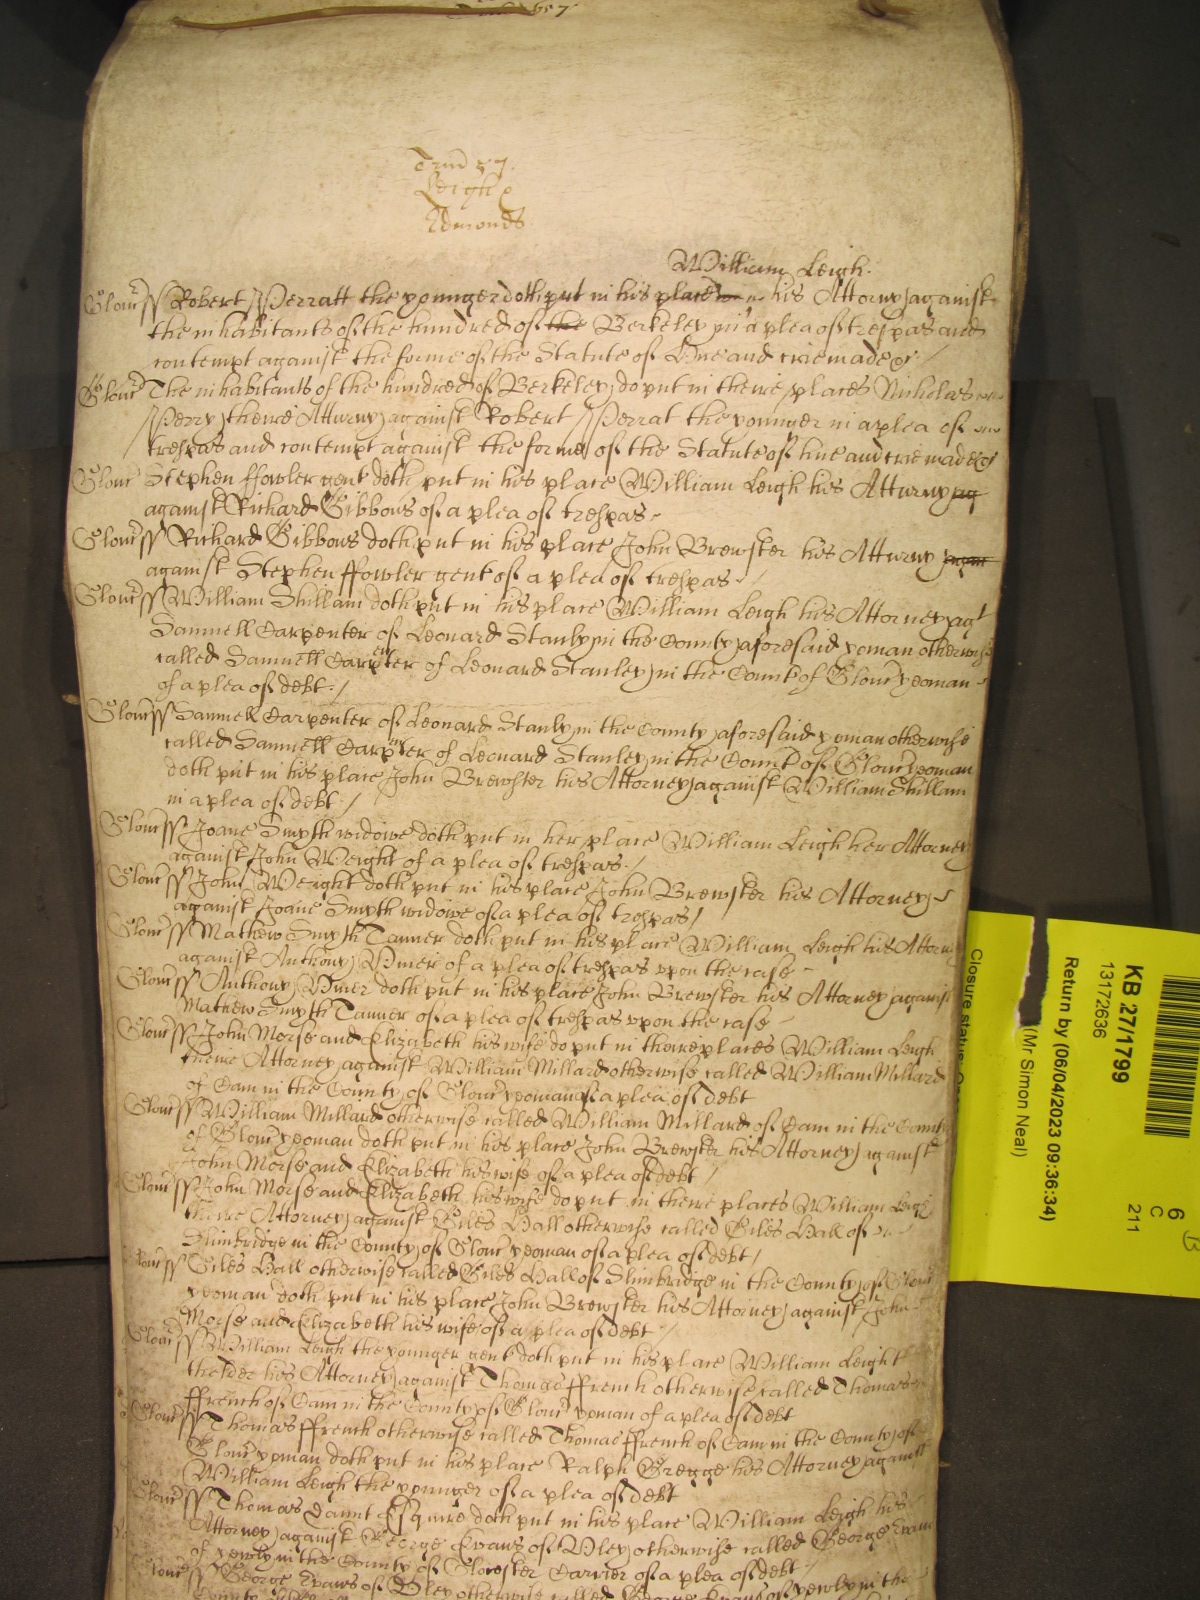 Trin 57.
Leigh
Edmonds
William Leigh.
Glouc ss Robert Perratt the younger doth put in his place his Attorny against
the inhabitants of the hundred of the Berkeley in a plea of trespas and
contempt against the forme of the Statute of Hue and crie made &c /
Glouc The inhabitants of the hundred of Berkeley do put in theire places Nicholas
Perry theire Atturny against Robert Perrat the younger in a plea of
trespas and contempt against the forme of the Statute of hue and crie made &c
Glouc Stephen ffowler gent doth put in his place William Leigh his Atturny ag
against Richard Gibbons of a plea of trespas
Glouc ss Richard Gibbons doth put in his place John Brewster his Atturny
against Stephen ffowler gent of a plea of trespas /
Glouc ss William Shillam doth put in his place William Leigh his Attorney agt
Samuell Carpenter of Leonard Stanly in the County aforesaid yoman otherwise
called Samuell Carpenter of Leonard Stanley in the County of Glouc yeoman
of a plea of debt /
Glouc ss Samuell Carpenter of Leonard Stanly in the County aforesaid yoman otherwise
called Samuell Carpenter of Leonard Stanley in the County of Glouc yeoman
doth put in his place John Brewster his Attorney against William Shillam
in a plea of debt /
Glouc ss Joane Smyth widowe doth put in her place William Leigh her Attorney
against John Weight of a plea of trespas /
Glouc ss John Weight doth put in his place John Brewster his Attorney
against Joane Smyth widowe of a plea of trespas /
Glouc ss Mathew Smyth Tanner doth put in his place William Leigh his Attorn
against Anthony of a plea of trespas upon the case
Glouc ss Anthony doth put in his place John Brewster his Attorney against
Mathew Smyth Tanner of a plea of trespas upon the case
Glouc ss John Morse and Elizabeth his wife do put in theire places William Leigh
theire Attorney against William Millard otherwise called William Millard
of Cam in the County of Glouc yeoman of a plea of debt
Glouc ss William Millard otherwise called William Millard of Cam in the County
of Glouc yeoman doth put in his place John Brewster his Attorney against
John Morse and Elizabeth his wife of a plea of debt /
Glouc ss John Morse and Elizabeth his wife do put in theire places William Leigh
theire Attorney against Giles Hall otherwise called Giles Hall of
Slimbridge in the County of Glouc yeoman of a plea of debt /
Glouc ss Giles Hall otherwise called Giles Hall of Slimbridge in the County of Glouc
yeoman doth put in his place John Brewster his Attorney against John
Morse and Elizabeth his wife of a plea of debt /
Glouc ss William Leigh the younger gent doth put in his place William Leigh
thelder his Attorney against Thomas ffrench otherwise called Thomas
ffrench of Cam in the County of Glouc yoman of a plea of debt
Glouc ss Thomas ffrench otherwise called Thomas ffrench of Cam in the County of
Glouc yoman doth put in his place Ralph Gregge his Attorney against
William Leigh the younger of a plea of debt
Glouc ss Thomas Daunt Esquire doth put in his place William Leigh his
Attorney against George Evans of Uley otherwise called George Evans
of yewly in the County of Glocester Carrier of a plea of debt /
Glouc ss George Evans of Uley otherwise called George Evans of yewly in the
KB 27/1799
13172636
Return by (06/04/2023 09:36:34)
(Mr Simon Neal)
Closure status:
6
C
211